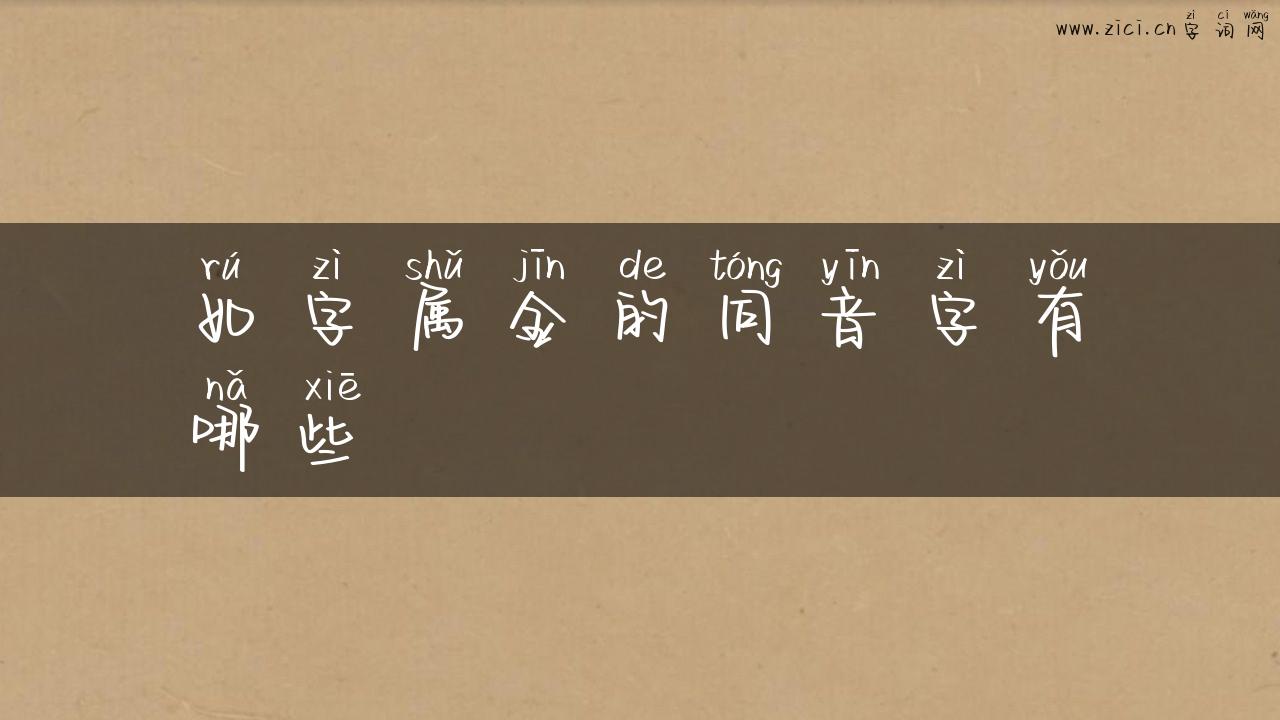 zì cí wǎng
www.zici.cn 字词网
rú zì shǔ jīn de tóng yīn zì yǒu
如字属金的同音字有
nǎ xiē
哪些